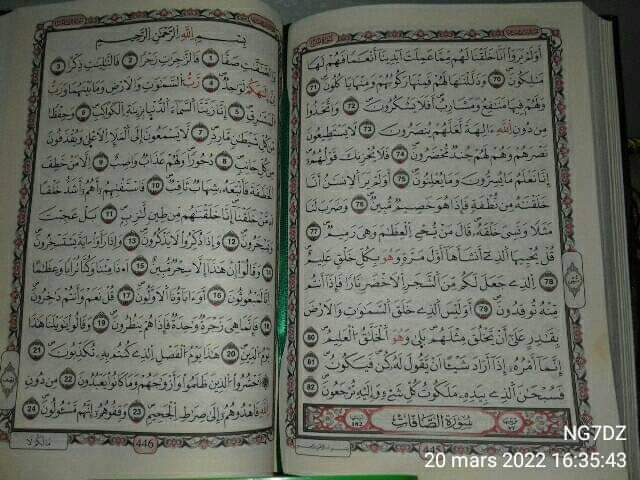 أَوَلَمْ يَرَوَاْ اَنَّا خَلَقْنَا لَهُم مِّمَّا عَمِلَتَ اَيْدِينَا أَنْعَٰماً فَهُمْ لَهَا
مَٰلِكُونَ 70 وَذَلَّلْنَٰهَا لَهُمْ فَمِنْهَا رَكُوبُهُمْ وَمِنْهَا يَاكُلُونَ 71
وَلَهُمْ فِيهَا مَنَٰفِعُ وَمَشَارِبُ أَفَلَا يَشْكُرُونَ 72 وَاتَّخَذُواْ
مِن دُونِ اِللَّهِ ءَالِهَةً لَّعَلَّهُمْ يُنصَرُونَ 73 لَا يَسْتَطِيعُونَ
نَصْرَهُمْ وَهُمْ لَهُمْ جُندٌ مُّحْضَرُونَ 74 فَلَا يُحْزِنكَ قَوْلُهُمُ
إِنَّا نَعْلَمُ مَا يُسِرُّونَ وَمَا يُعْلِنُونَ 75 أَوَلَمْ يَرَ اَلِانسَٰنُ أَنَّا
خَلَقْنَٰهُ مِن نُّطْفَةٍ فَإِذَا هُوَ خَصِيمٌ مُّبِينٌ 76 وَضَرَبَ لَنَا
مَثَلًا وَنَسِيَ خَلْقَهُ قَالَ مَن يُّحْيِ اِلْعِظَٰمَ وَهِيَ رَمِيمٌ 77
قُلْ يُحْيِيهَا اَلذِي أَنشَأَهَا أَوَّلَ مَرَّةٍ وَهُوَ بِكُلِّ خَلْقٍ عَلِيمٌ
78 اِلذِي جَعَلَ لَكُم مِّنَ اَلشَّجَرِ اِلَاخْضَرِ نَارًا فَإِذَا أَنتُم
مِّنْهُ تُوقِدُونَ 79 أَوَلَيْسَ اَلذِي خَلَقَ اَلسَّمَٰوَٰتِ وَالَارْضَ
بِقَٰدِرٍ عَلَىٰ أَنْ يَّخْلُقَ مِثْلَهُم بَلَىٰ وَهُوَ اَلْخَلَّٰقُ اُلْعَلِيمُ 80
إِنَّمَا أَمْرُهُ إِذَا أَرَادَ شَيْـًٔا اَنْ يَّقُولَ لَهُ كُن فَيَكُونُ 81
فَسُبْحَٰنَ اَلذِي بِيَدِهِ مَلَكُوتُ كُلِّ شَيْءٍ وَإِلَيْهِ تُرْجَعُونَ 82
سُورَةُ الصَّافَّات
182
445
بِسْمِ اِللَّهِ اِلرَّحْمَٰنِ اِلرَّحِيمِ
وَالصَّٰٓفَّٰتِ صَفًّا 1 فَالزَّٰجِرَٰتِ زَجْرًا 2 فَالتَّٰلِيَٰتِ ذِكْرًا 3
اِنَّ إِلَٰهَكُمْ لَوَٰحِدٌ 4 رَّبُّ اُلسَّمَٰوَٰتِ وَالَارْضِ وَمَا بَيْنَهُمَا وَرَبُّ
اُلْمَشَٰرِقِ 5 إِنَّا زَيَّنَّا اَلسَّمَاءَ اَلدُّنْيَا بِزِينَةِ اِلْكَوَاكِبِ 6 وَحِفْظًا
مِّن كُلِّ شَيْطَٰنٍ مَّارِدٍ 7 لَّا يَسْمَعُونَ إِلَى اَلْمَلَإِ اِلَاعْلَىٰ وَيُقْذَفُونَ
مِن كُلِّ جَانِبٍ 8 دُحُورًا وَلَهُمْ عَذَابٌ وَاصِبٌ 9 اِلَّا مَنْ خَطِفَ
اَلْخَطْفَةَ فَأَتْبَعَهُ شِهَابٌ ثَاقِبٌ 10 فَاسْتَفْتِهِمُ أَهُمُ أَشَدُّ خَلْقًا
اَم مَّنْ خَلَقْنَا إِنَّا خَلَقْنَٰهُم مِّن طِينٍ لَّازِبٍ 11 بَلْ عَجِبْتَ
وَيَسْخَرُونَ 12 وَإِذَا ذُكِّرُواْ لَا يَذْكُرُونَ 13 وَإِذَا رَأَوَاْ ءَايَةً يَسْتَسْخِرُونَ
14 وَقَالُواْ إِنْ هَٰذَا إِلَّا سِحْرٌ مُّبِينٌ 15 اَٰ۟ذَا مِتْنَا وَكُنَّا تُرَابًا وَعِظَٰمًا
اِنَّا لَمَبْعُوثُونَ 16 أَوَءَابَاؤُنَا اَلَاوَّلُونَ 17 قُلْ نَعَمْ وَأَنتُمْ دَٰخِرُونَ
18 فَإِنَّمَا هِيَ زَجْرَةٌ وَٰحِدَةٌ فَإِذَا هُمْ يَنظُرُونَ 19 وَقَالُواْ يَٰوَيْلَنَا هَٰذَا
يَوْمُ اُلدِّينِ 20 هَٰذَا يَوْمُ اُلْفَصْلِ اِلذِي كُنتُم بِهِ تُكَذِّبُونَ 21
اَحْشُرُواْ اُلذِينَ ظَلَمُواْ وَأَزْوَٰجَهُمْ وَمَا كَانُواْ يَعْبُدُونَ 22 مِن دُونِ
اِللَّهِ فَاهْدُوهُمُ إِلَىٰ صِرَٰطِ اِلْجَحِيمِ 23 وَقِفُوهُمُ إِنَّهُم مَّسْـُٔولُونَ 24
مَا لَكُمْ لَا
446
NG7DZ
20 mars 2022 16:35:43